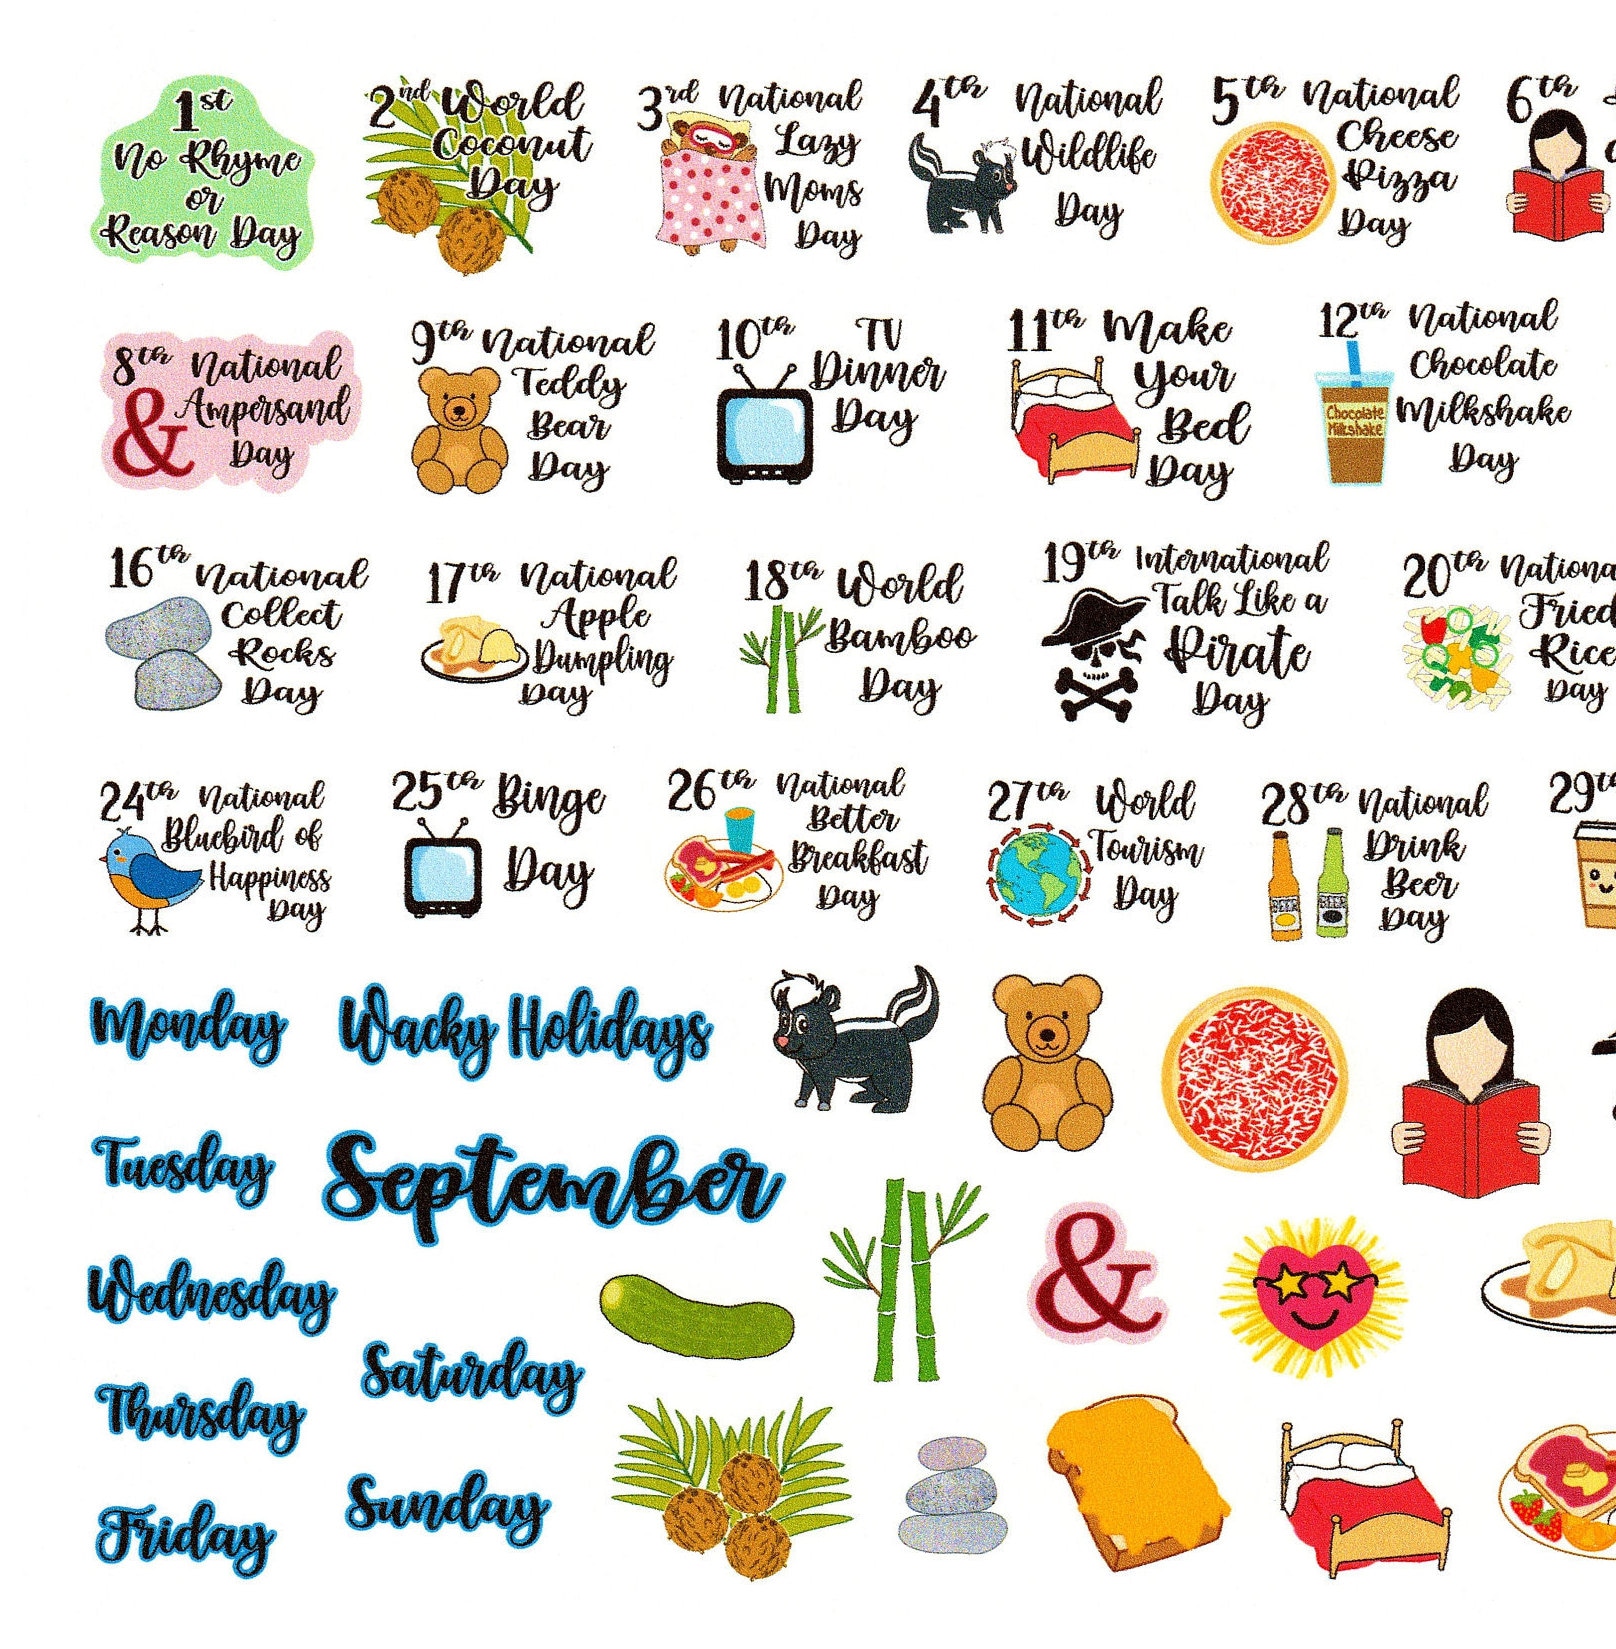 1st
No Rhyme
or
Reason Day
2nd World
Coconut
Day
3rd National
Lazy
Moms
Day
4th National
Wildlife
Day
5th National
Cheese
Pizza
Day
6th
8th National
& Ampersand
Day
9th National
Teddy
Bear
Day
10th TV
Dinner
Day
11th Make
Your
Bed
Day
12th National
Chocolate
Milkshake
Day
Chocolate
Milkshake
16th National
Collect
Rocks
Day
17th National
Apple
Dumpling
Day
18th World
Bamboo
Day
19th International
Talk Like a
Pirate
Day
20th National
Fried
Rice
Day
24th National
Bluebird of
Happiness
Day
25th Binge
Day
26th National
Better
Breakfast
Day
27th World
Tourism
Day
28th National
Drink
Beer
Day
BEER
BEER
29th
Monday
Wacky Holidays
Tuesday
September
Wednesday
&
Saturday
Thursday
Sunday
Friday